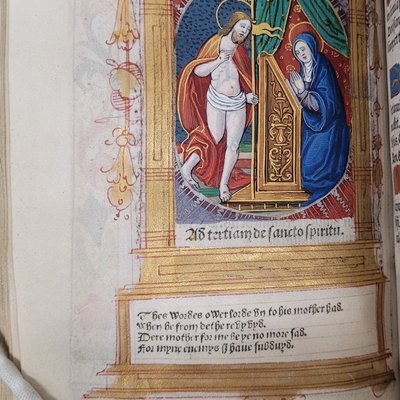 Ad tertiam de sancto spiritu.
Thes wordes ower lorde vn to his mother had.
When he from dethe revyvyd.
Dere mother for me be ye no more sad.
For myne enemys I have subduyd.